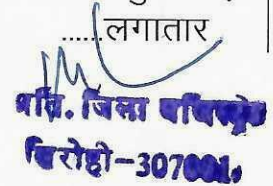 .....लगातार
अति. जिला मजिस्ट्रेट
सिरोही-307001